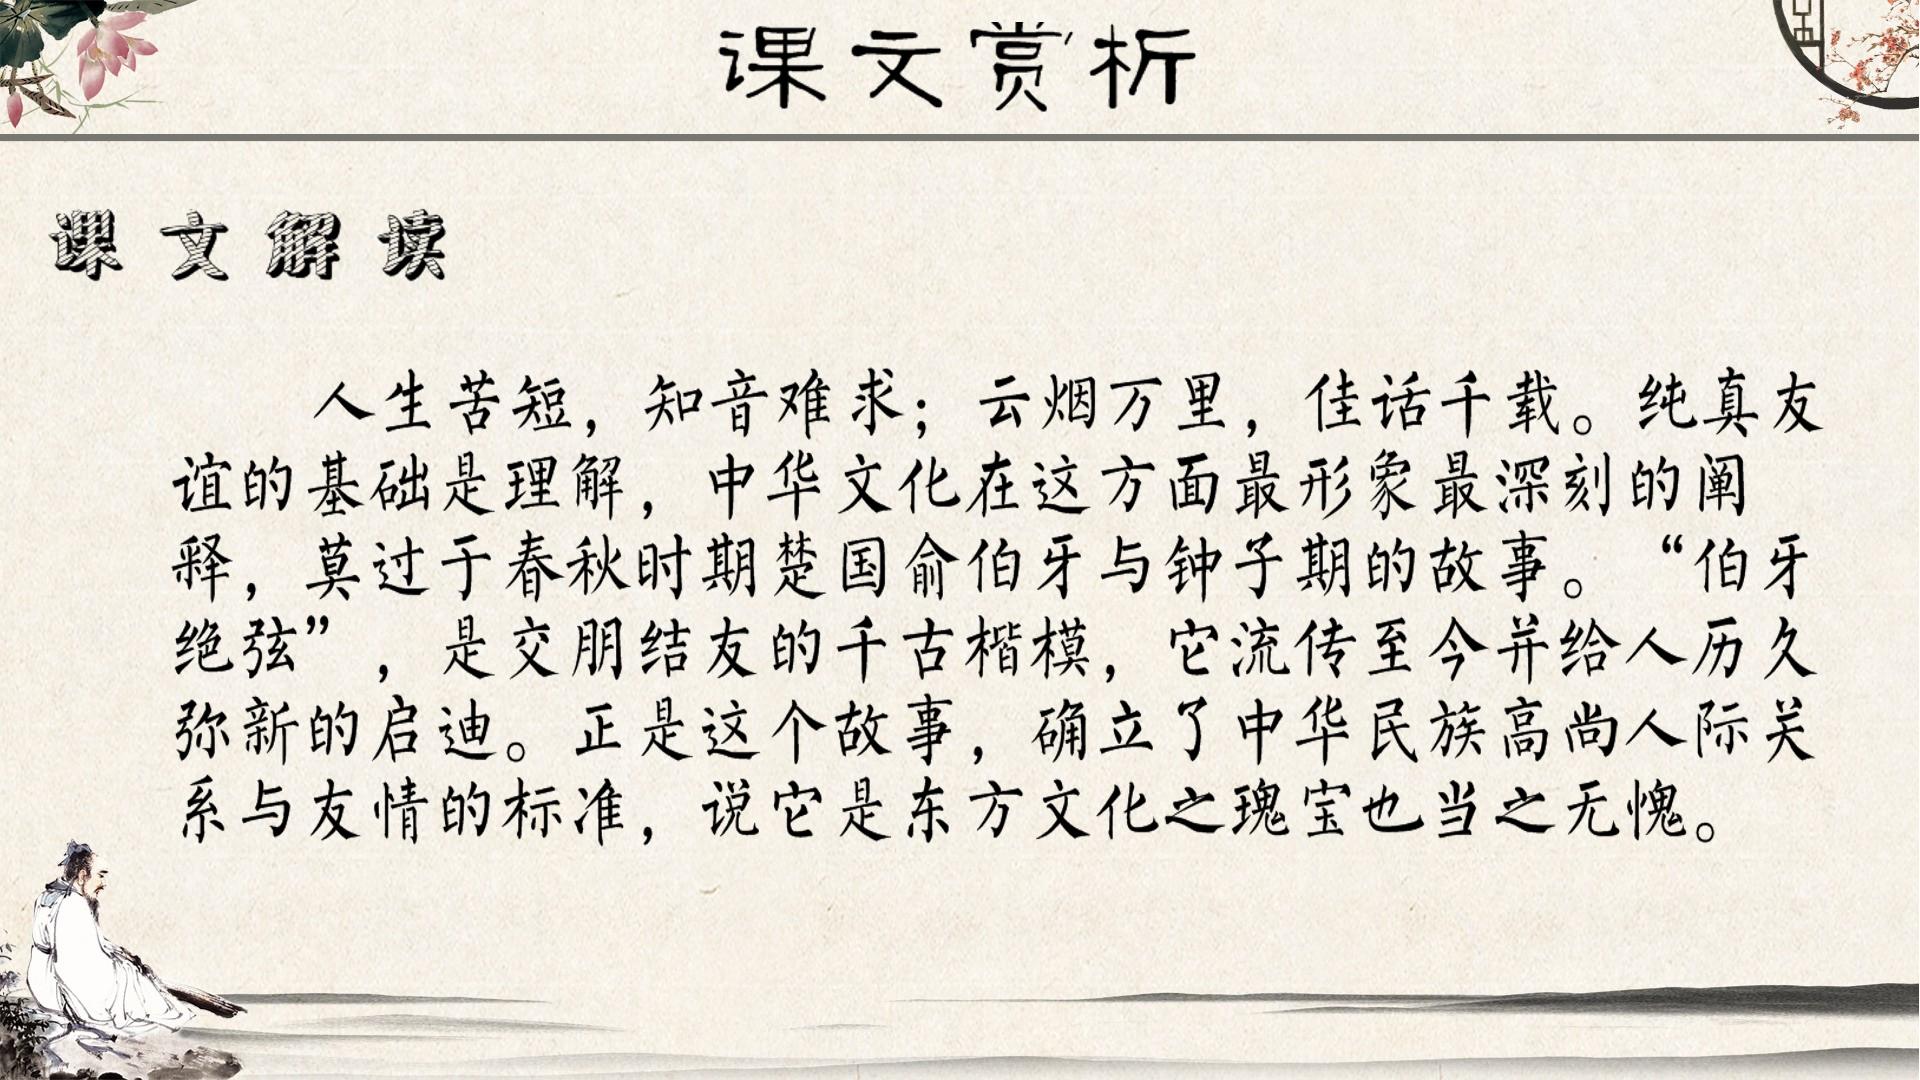 课文赏析
课文解读
人生苦短，知音难求；云烟万里，佳话千载。纯真友
谊的基础是理解，中华文化在这方面最形象最深刻的阐
释，莫过于春秋时期楚国俞伯牙与钟子期的故事。“伯牙
绝弦”，是交朋结友的千古楷模，它流传至今并给人历久
弥新的启迪。正是这个故事，确立了中华民族高尚人际关
系与友情的标准，说它是东方文化之瑰宝也当之无愧。